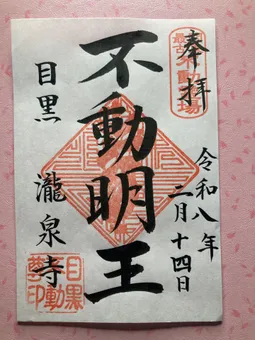 奉拝
令和八年
二月十四日
不動明王
目黒
瀧泉寺
目黒
不動
尊印